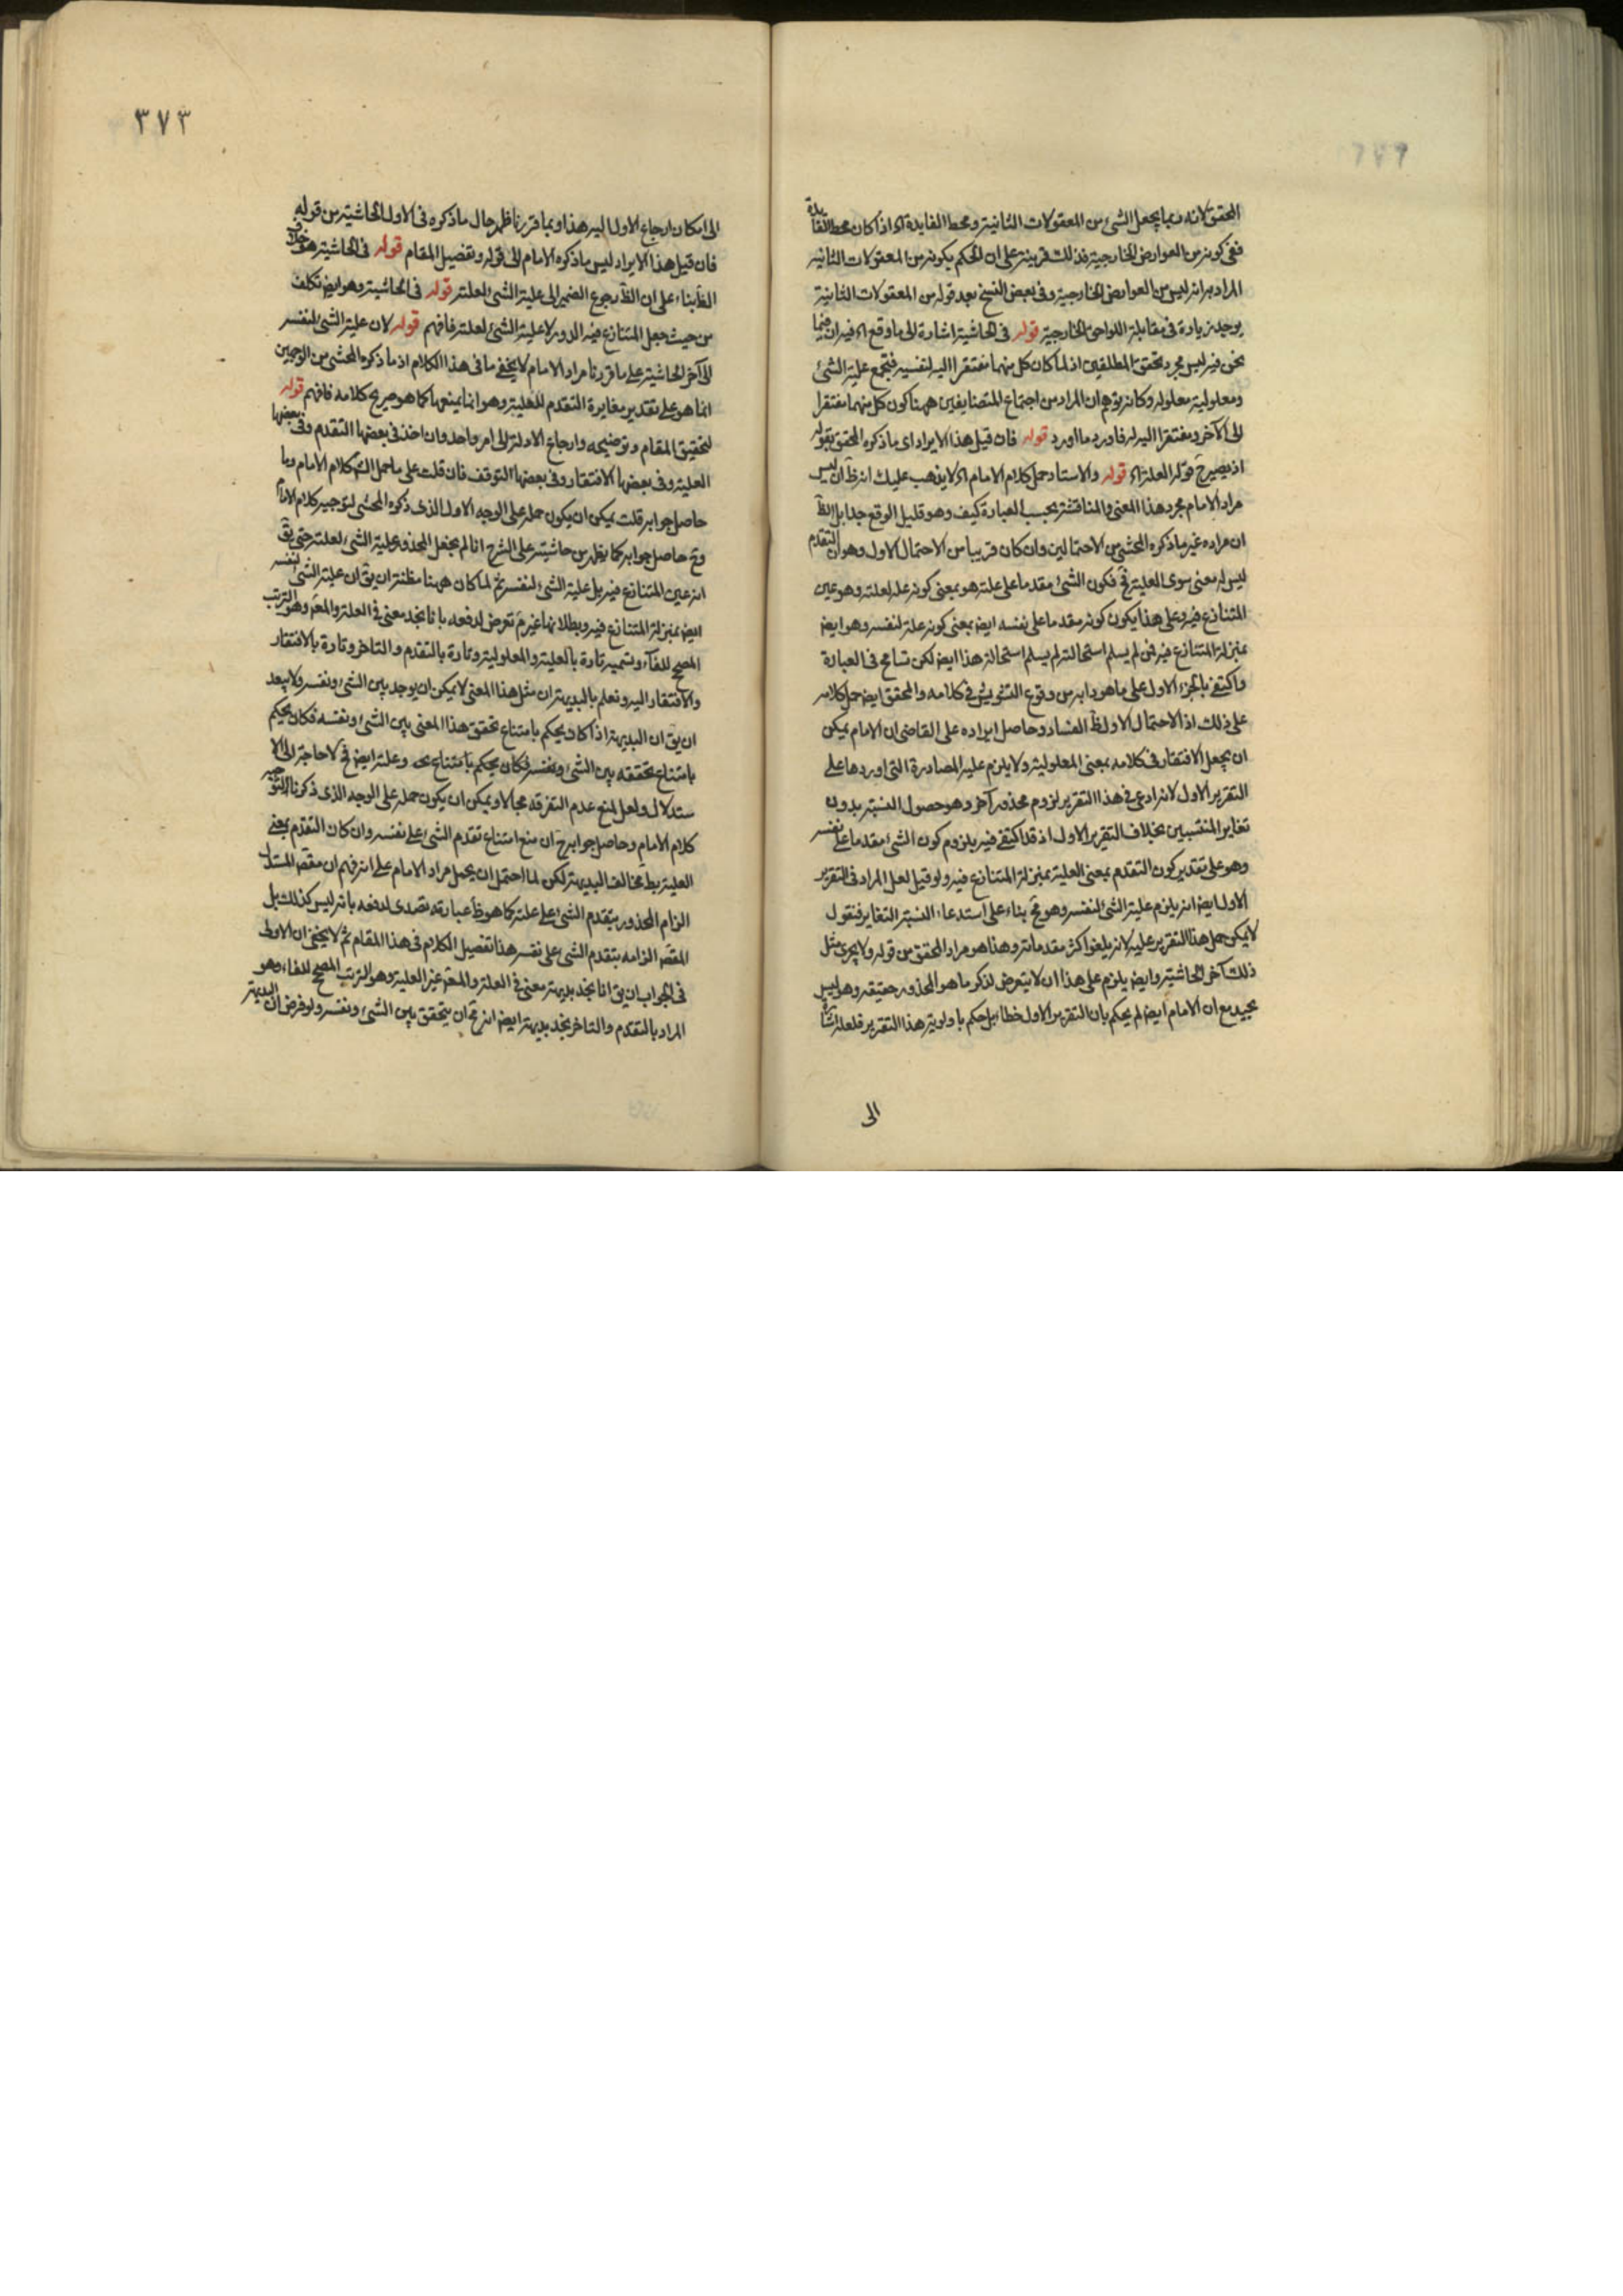 المحقق لانه ربما يجعل الشئ من المعقولات الثانية ومحط الفايدة آه اذا كان محط الفايدة
ففى كونه من العوارض الخارجية فذلك قرينة على ان الحكم بكونه من المعقولات الثانية
المراد به انه ليس من العوارض الخارجية وفى بعض النسخ بعد قوله من المعقولات الثانية
يوجد زيادة فى مقابلة اللواحق الخارجية قوله فى الحاشية اشارة الى ما وقع آه فيه ان فيما
نحن فيه ليس مجرد تحقق المطلقين اذ لما كان كل منهما مفتقرا اليه لنفسه فتجمع علية الشئ
ومعلولية معلوله وكانه توهم ان المراد من اجتماع المتضايفين ههنا كون كل منهما مفتقرا
الى الآخر ومفتقرا اليه له فاورد ما اورد قوله فان قيل هذا الايراد اى ما ذكره المحقق بقوله
اذ يصيرح قوله العلة آه قوله والاستاد حمل كلام الامام آه لا يذهب عليك انه ظ ان ليس
مراد الامام مجرد هذا المعنى والمناقشة بحسب العبارة كيف وهو قليل الوقع جدا بل الظ
ان مراده غير ما ذكره المحشى من الاحتمالين وان كان قريبا من الاحتمال الاول وهو ان التقدم
ليس له معنى سوى العلية فح فكون الشئ مقدما على علته هو بمعنى كونه علة لعلته وهو عين
المتنازع فيه وعلى هذا يكون كونه مقدما على نفسه ايض بمعنى كونه علة لنفسه وهو ايض
بمنزلة المتنازع فيه فمن لم يسلم استحالته لم يسلم استحالة هذا ايض لكن تسامح فى العبارة
واكتفى بالجزء الاول على ما هو دابه من وقوع التشويش فى كلامه والمحقق ايض حمل كلامه
على ذلك اذ الاحتمال الاول ظ الفساد وحاصل ايراده على القاضى ان الامام يمكن
ان يجعل الافتقار فى كلامه بمعنى المعلولية ولا يلزم عليه المصادرة التى اوردها على
التقرير الاول لانه ادعى فى هذا التقرير لزوم محذور آخر وهو حصول النسبة بدون
تغاير المنتسبين بخلاف التقرير الاول اذ قد اكتفى فيه بلزوم كون الشئ مقدما على نفسه
وهو على تقدير كون التقدم بمعنى العلية بمنزلة المتنازع فيه ولو قيل لعل المراد فى التقرير
الاول ايض انه يلزم علية الشئ لنفسه وهو مح بناء على استدعاء النسبة التغاير فنقول
لا يمكن حمل هذا التقرير عليه لانه يلغو اكثر مقدماته وهذا هو مراد المحقق من قوله ولا يجرى مثل
ذلك آخر الحاشية وايض يلزم على هذا ان لا يتعرض لذكر ما هو المحذور حقيقة وهو ليس
بجيد مع ان الامام ايض لم يحكم بان التقرير الاول خطا بل حكم باولوية هذا التقرير فلعله اشارة
الى
٣٧٣
الى امكان ارجاع الاول اليه هذا وبما قررنا ظهر حال ما ذكره فى الاول الحاشية من قوله
فان قيل هذا الايراد ليس ما ذكره الامام الى قوله وتفصيل المقام قوله فى الحاشية هو خلاف
الظ بناء على ان الظ رجوع الضمير الى علية الشئ لعلته قوله فى الحاشية وهو ايض تكلف
من حيث جعل المتنازع فيه الدور لا علية الشئ لعلته فافهم قوله لان علية الشئ لنفسه
الى آخر الحاشية على ما قررنا مراد الامام لا يخفى ما فى هذا الكلام اذ ما ذكره المحشى من الوجهين
انما هو على تقدير مغايرة التقدم للعلية وهو انما يمنعها كما هو صريح كلامه فافهم قوله
لتحقيق المقام وتوضيحه وارجاع الادلة الى امر واحد وان اخذ فى بعضها التقدم وفى بعضها
العلية وفى بعضها الافتقار وفى بعضها التوقف فان قلت على ما حمل كلام الامام وما
حاصل جوابه قلت يمكن ان يكون حمله على الوجه الاول الذى ذكره المحشى لتوجيه كلام الامام
وح حاصل جوابه كما يظهر من حاشيته على الشرح انا لم نجعل المحذور علية الشئ لعلته حتى يق
انه عين المتنازع فيه بل علية الشئ لنفسه ثم لما كان ههنا مظنة ان يق ان علية الشئ لنفسه
ايض بمنزلة المتنازع فيه وبطلانها غير تعرض لدفعه بانا نجد معنى فى العلة والمعلول وهو الترتب
المصحح للفاء وتسميه تارة بالعلية والمعلولية وتارة بالتقدم والتاخر وتارة بالافتقار
والافتقار اليه ونعلم بالبديهة ان مثل هذا المعنى لا يمكن ان يوجد بين الشئ ونفسه ولا يبعد
ان يق ان البديهة اذا كان يحكم بامتناع تحقق هذا المعنى بين الشئ ونفسه فكان يحكم
بامتناع تحققه بين الشئ ونفسه فكان يحكم بامتناع وعلته ايض فح لا حاجة الى الا
ستدلال ولعل لمنع عدم التفرقة مجالا ويمكن ان يكون حمله على الوجه الذى ذكرنا لتوجيه
كلام الامام وحاصل جوابه ح ان منع امتناع تقدم الشئ على نفسه وان كان التقدم بمعنى
العلية بط مخالف البديهة لكن لما احتمل ان يحمل مراد الامام على انه فهم ان مقصد المستدل
الزام المحذور بتقدم الشئ على علته كما هو ظ عبارته تصدى لدفعه بانه ليس كذلك بل
المقصد الزامه بتقدم الشئ على نفسه هذا تفصيل الكلام فى هذا المقام ثم لا يخفى ان الاولى
فى الجواب ان يق انا نجد بديهة معنى فى العلة والمعلول غير العلية وهو الترتب المصحح للفاء وهو
المراد بالتقدم والتاخر نجد بديهة ايضا انه مح ان يتحقق بين الشئ ونفسه ولو فرض ان البديهة